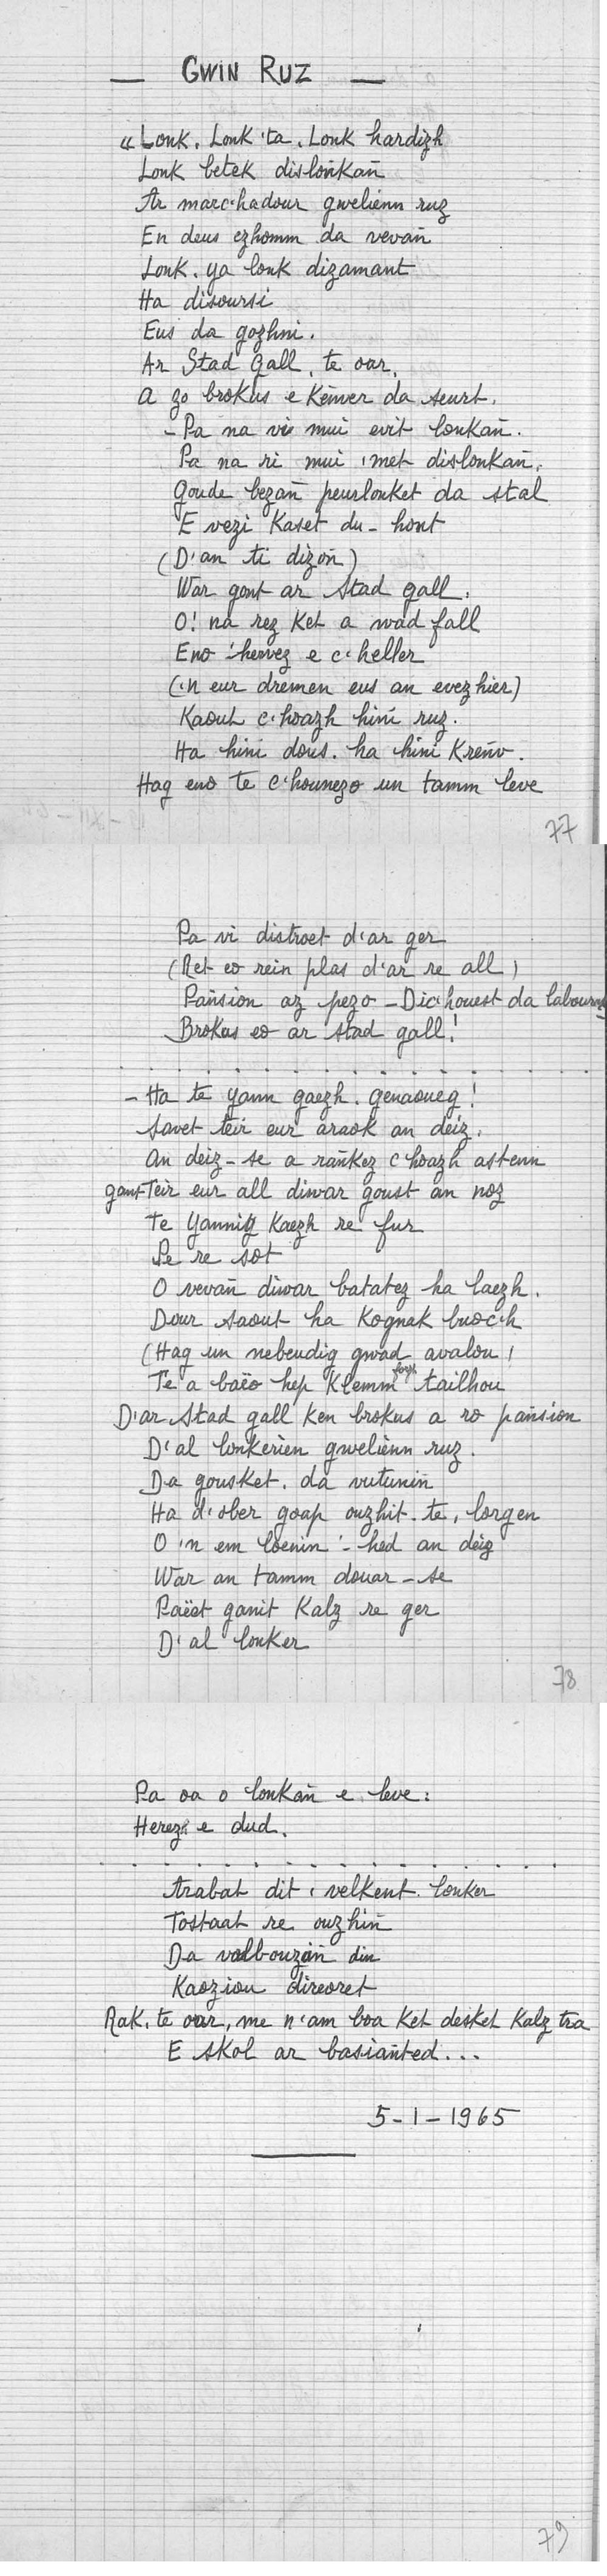 — GWIN RUZ —
"Lonk, Lonk 'ta, Lonk hardizh
Lonk betek disloñkañ
Ar marc'hadour gwelienn ruz
En deus ezhomm da vevañ
Lonk, ya lonk dizamant
Ha disoursi
Eus da gozhni.
Ar Stad gall, te oar,
A zo brokus e Keñver da seurt.
- Pa na vi mui evit lonkañ.
Pa na ri mui 'met dislonkañ,
Goude bezañ peurlonket da stal
E vezi Kaset du-hont
(D'an ti dizoñ)
War gont ar Stad gall.
O! na rez Ket a wad fall
Eno 'hervez e c'heller
('n eur dremen eus an evezhier)
Kaout c'hoazh hini ruz.
Ha hini dous, ha hini Kreñv.
Hag eno te c'hounezo un tamm leve
77
Pa vi distroet d'ar ger
(Ret eo rein plas d'ar re all)
Pañsion az pezo - Dic'houest da labourat
Brokus eo ar stad gall!
. . . . . . . . . . . . . . . .
- Ha te Yann gaezh, genaoueg!
Savet teir eur araok an deiz,
An deiz-se a rañkez c'hoazh astenn
gant Teir eur all diwar goust an noz
Te Yannig Kaezh re fur
Pe re sot
O vevañ diwar batatez ha laezh.
Dour saout ha Kognak buoc'h
(Hag un nebeudig gwad avalou)
Te a baeo hep Klemm foxh tailhou
D'ar Stad gall Ken brokus a ro pañsion
D'al lonkerien gwelienn ruz.
Da gousket, da vutuniñ
Ha d'ober goap ouzhit-te, lorgen
O 'n em loeniñ '-hed an deiz
War an tamm douar-se
Paeet ganit Kalz re ger
D'al lonker
78
Pa oa o lonkañ e leve:
Herezh e dud.
. . . . . . . . . . . . . . . .
Arabat dit, velkent, lonker
Tostaat re ouzhin
Da valbouzañ din
Kaoziou direoret
Rak, te oar, me n'am boa Ket desket Kalz tra
E skol ar basianted...
5-1-1965
79